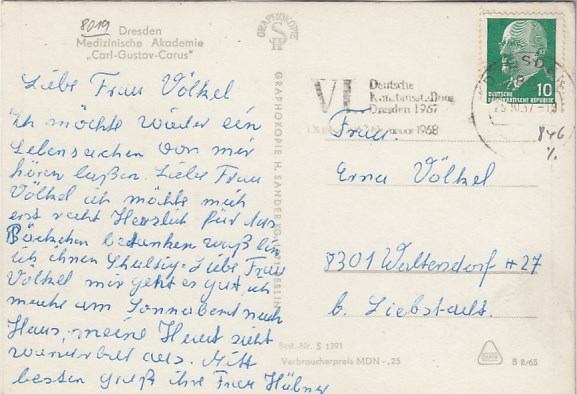 8019
Dresden
Medizinische Akademie
„Carl-Gustav-Carus"
Liebe Frau Völkel
Ich möchte wieder ein
Lebenszeichen von mir
hören laßen. Liebe Frau
Völkel ich möchte mich
erst recht Herzlich für Ihr
Päckchen bedanken
ich ihnen Schuldig. Liebe Frau
Völkel mir geht es gut, ich
mache am Sonnabend nach
Haus, meine Haut sieht
wunderbar aus. Mit
besten gruß ihre Frau Hübner
GRAPHOKOPIE
GRAPHOKOPIE H. SANDER KG, BERLIN
VI. Deutsche
Kunstausstellung
Dresden 1967
1968
10
DEUTSCHE
DEMOKRATISCHE REPUBLIK
846
Frau
Erna Völkel
8301 Waltersdorf # 27
b. Liebstadt.
Best. Nr. S 1391
Verbraucherpreis MDN -,25
B 8/65